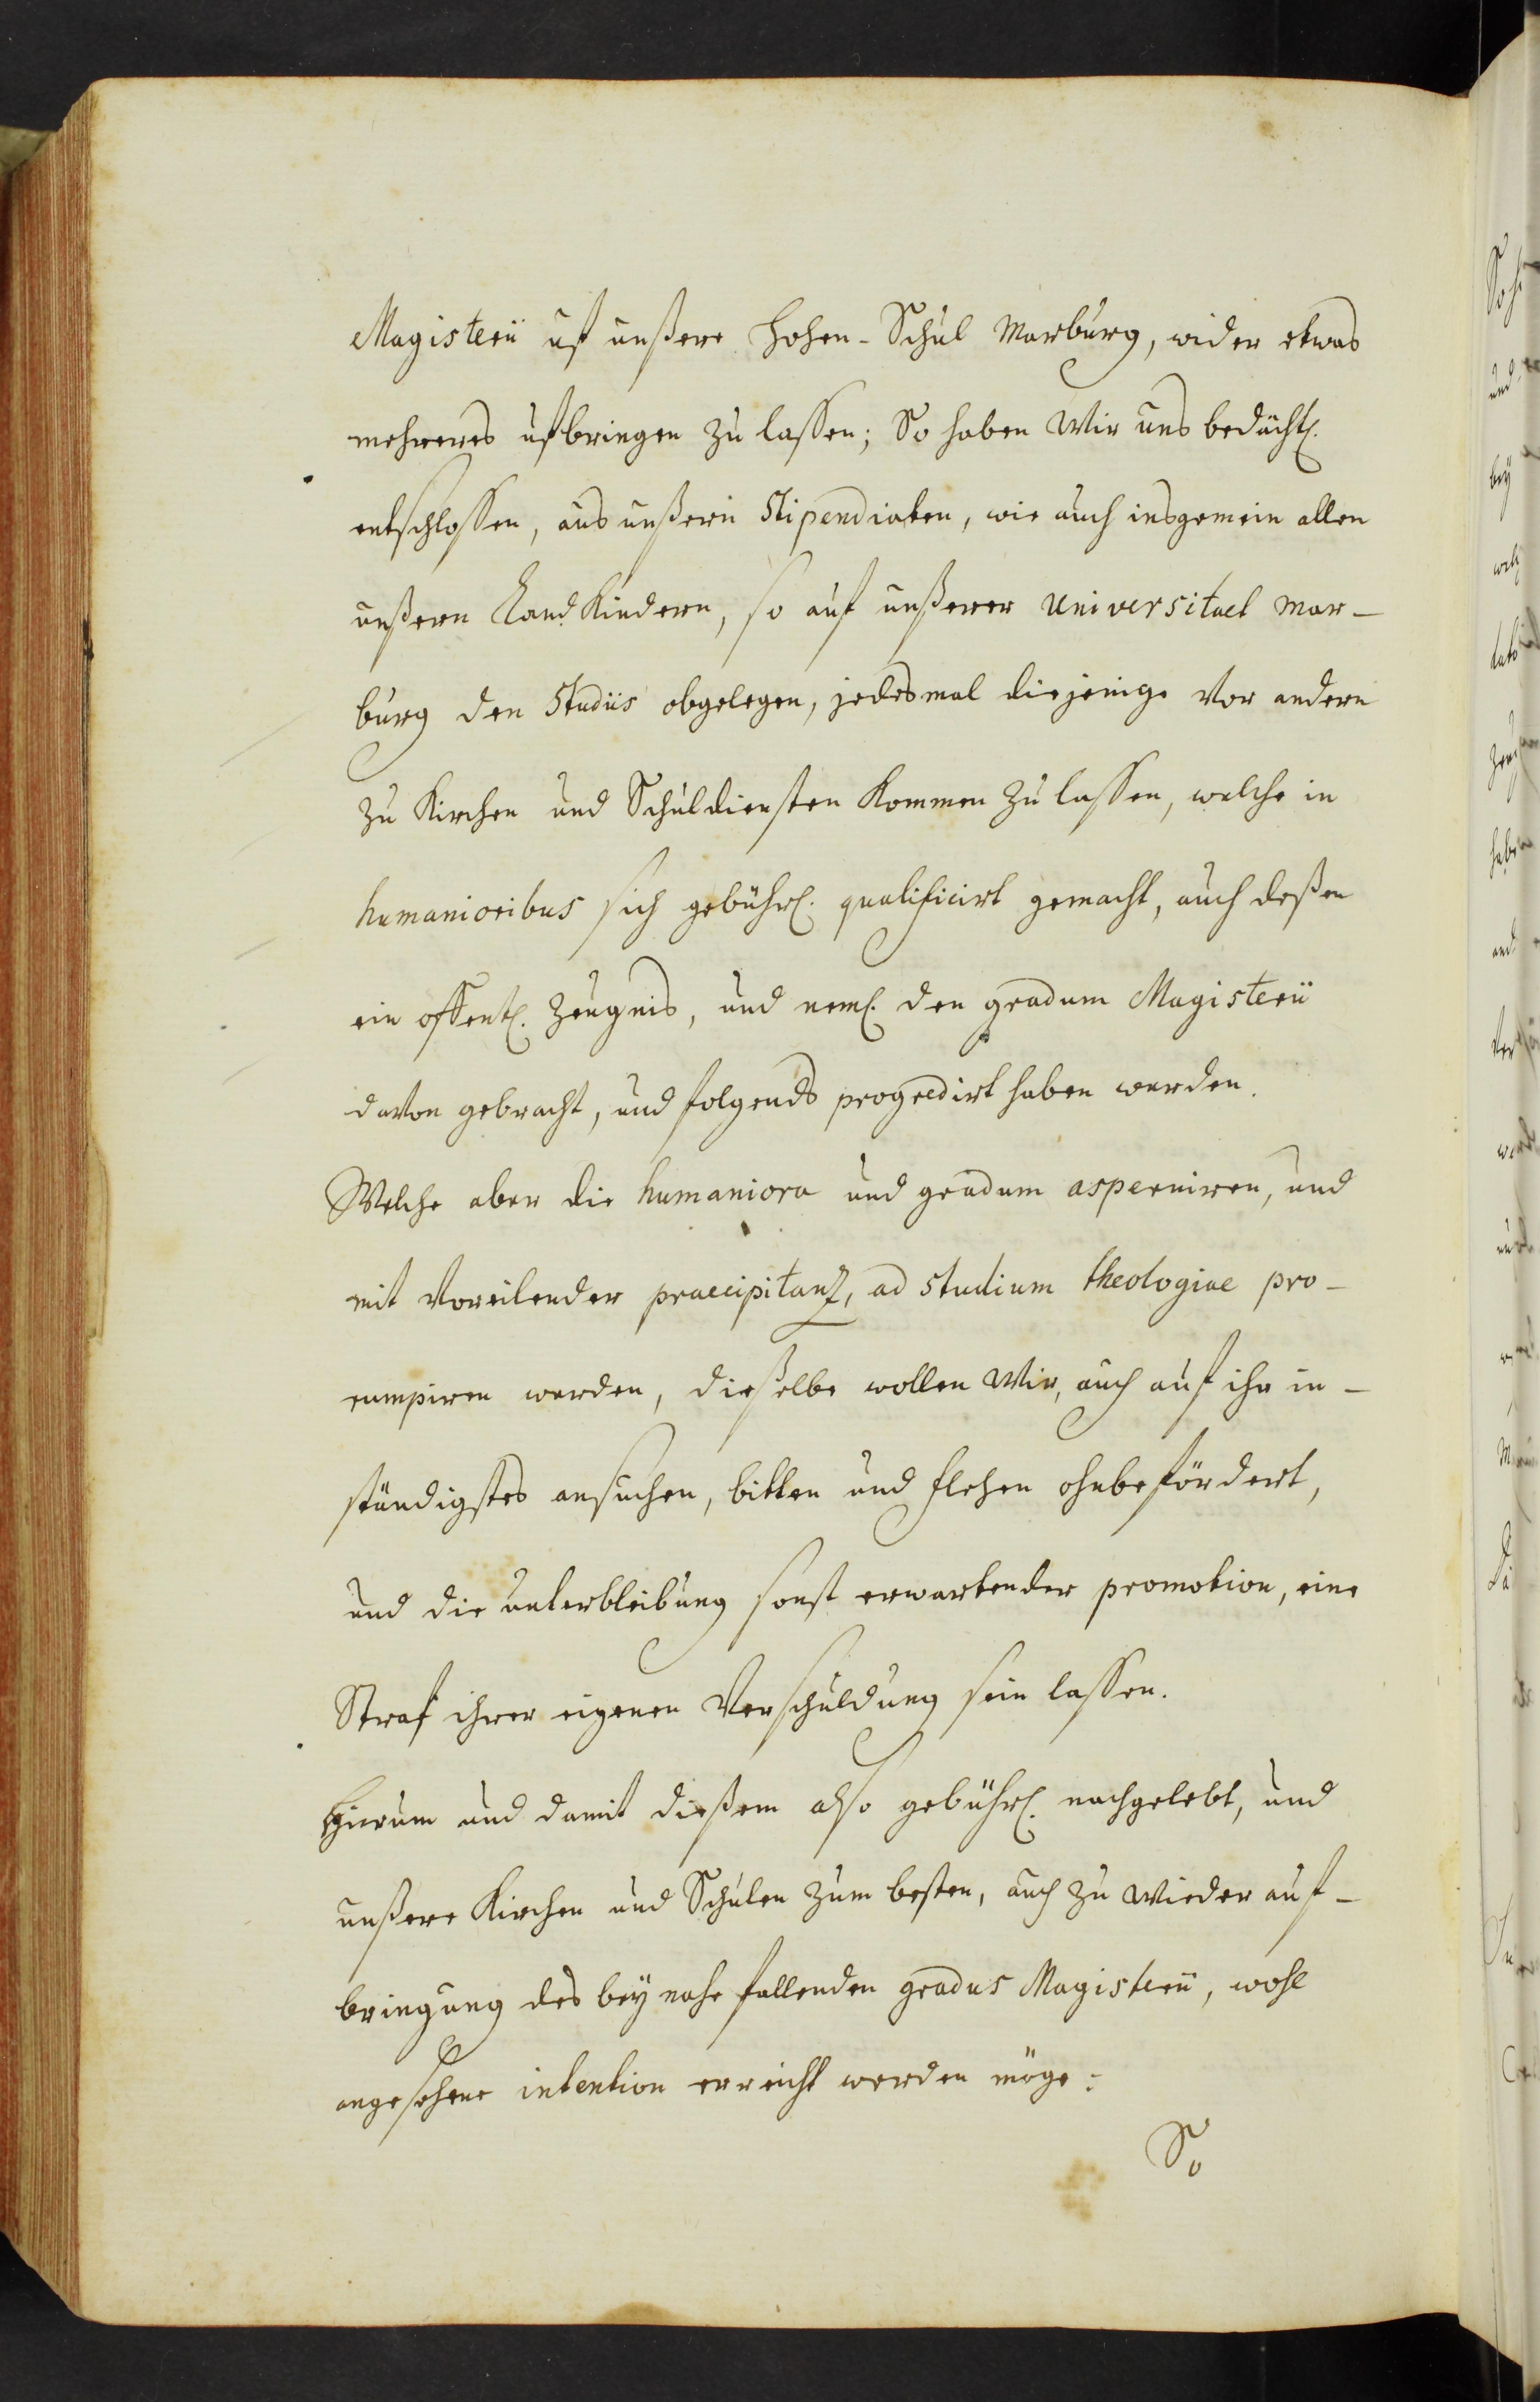 Magisterii uf unßere hohen-Schul Marburg, wider etwas
mehreres ufbringen zu laßen; So haben Wir uns bedächtl.
entschloßen, aus unßern Stipendiaten, wie auch insgemein allen
unßern Land Kindern, so auf unßerer Universitaet Mar-
burg den Studiis obgelegen, jedesmal diejenige vor andern
zu Kirchen und Schuldiensten kommen zu laßen, welche in
humanioribus sich gebührl. qualificirt gemacht, auch deßen
ein offentl. Zeugnis, und neml. den gradum Magisterii
davon gebracht, und folgends progredirt haben werden.
Welche aber die humaniora und gradum asperniren, und
mit voreilender praecipitanz, ad studium theologiae pro-
rumpiren werden, dießelbe wollen Wir, auch auf ihr in-
ständigstes ansuchen, bitten und flehen ohnbefördert,
und die unterbleibung sonst erwartender promotion, eine
Straf ihrer eigenen Verschuldung sein laßen.
Hierum und damit dießem also gebührl. nachgelebt, und
unßere Kirchen und Schulen zum besten, auch zu wieder auf-
bringung des bey nahe fallenden gradus Magisterii, wohl
angesehene intention erreicht werden möge:
So